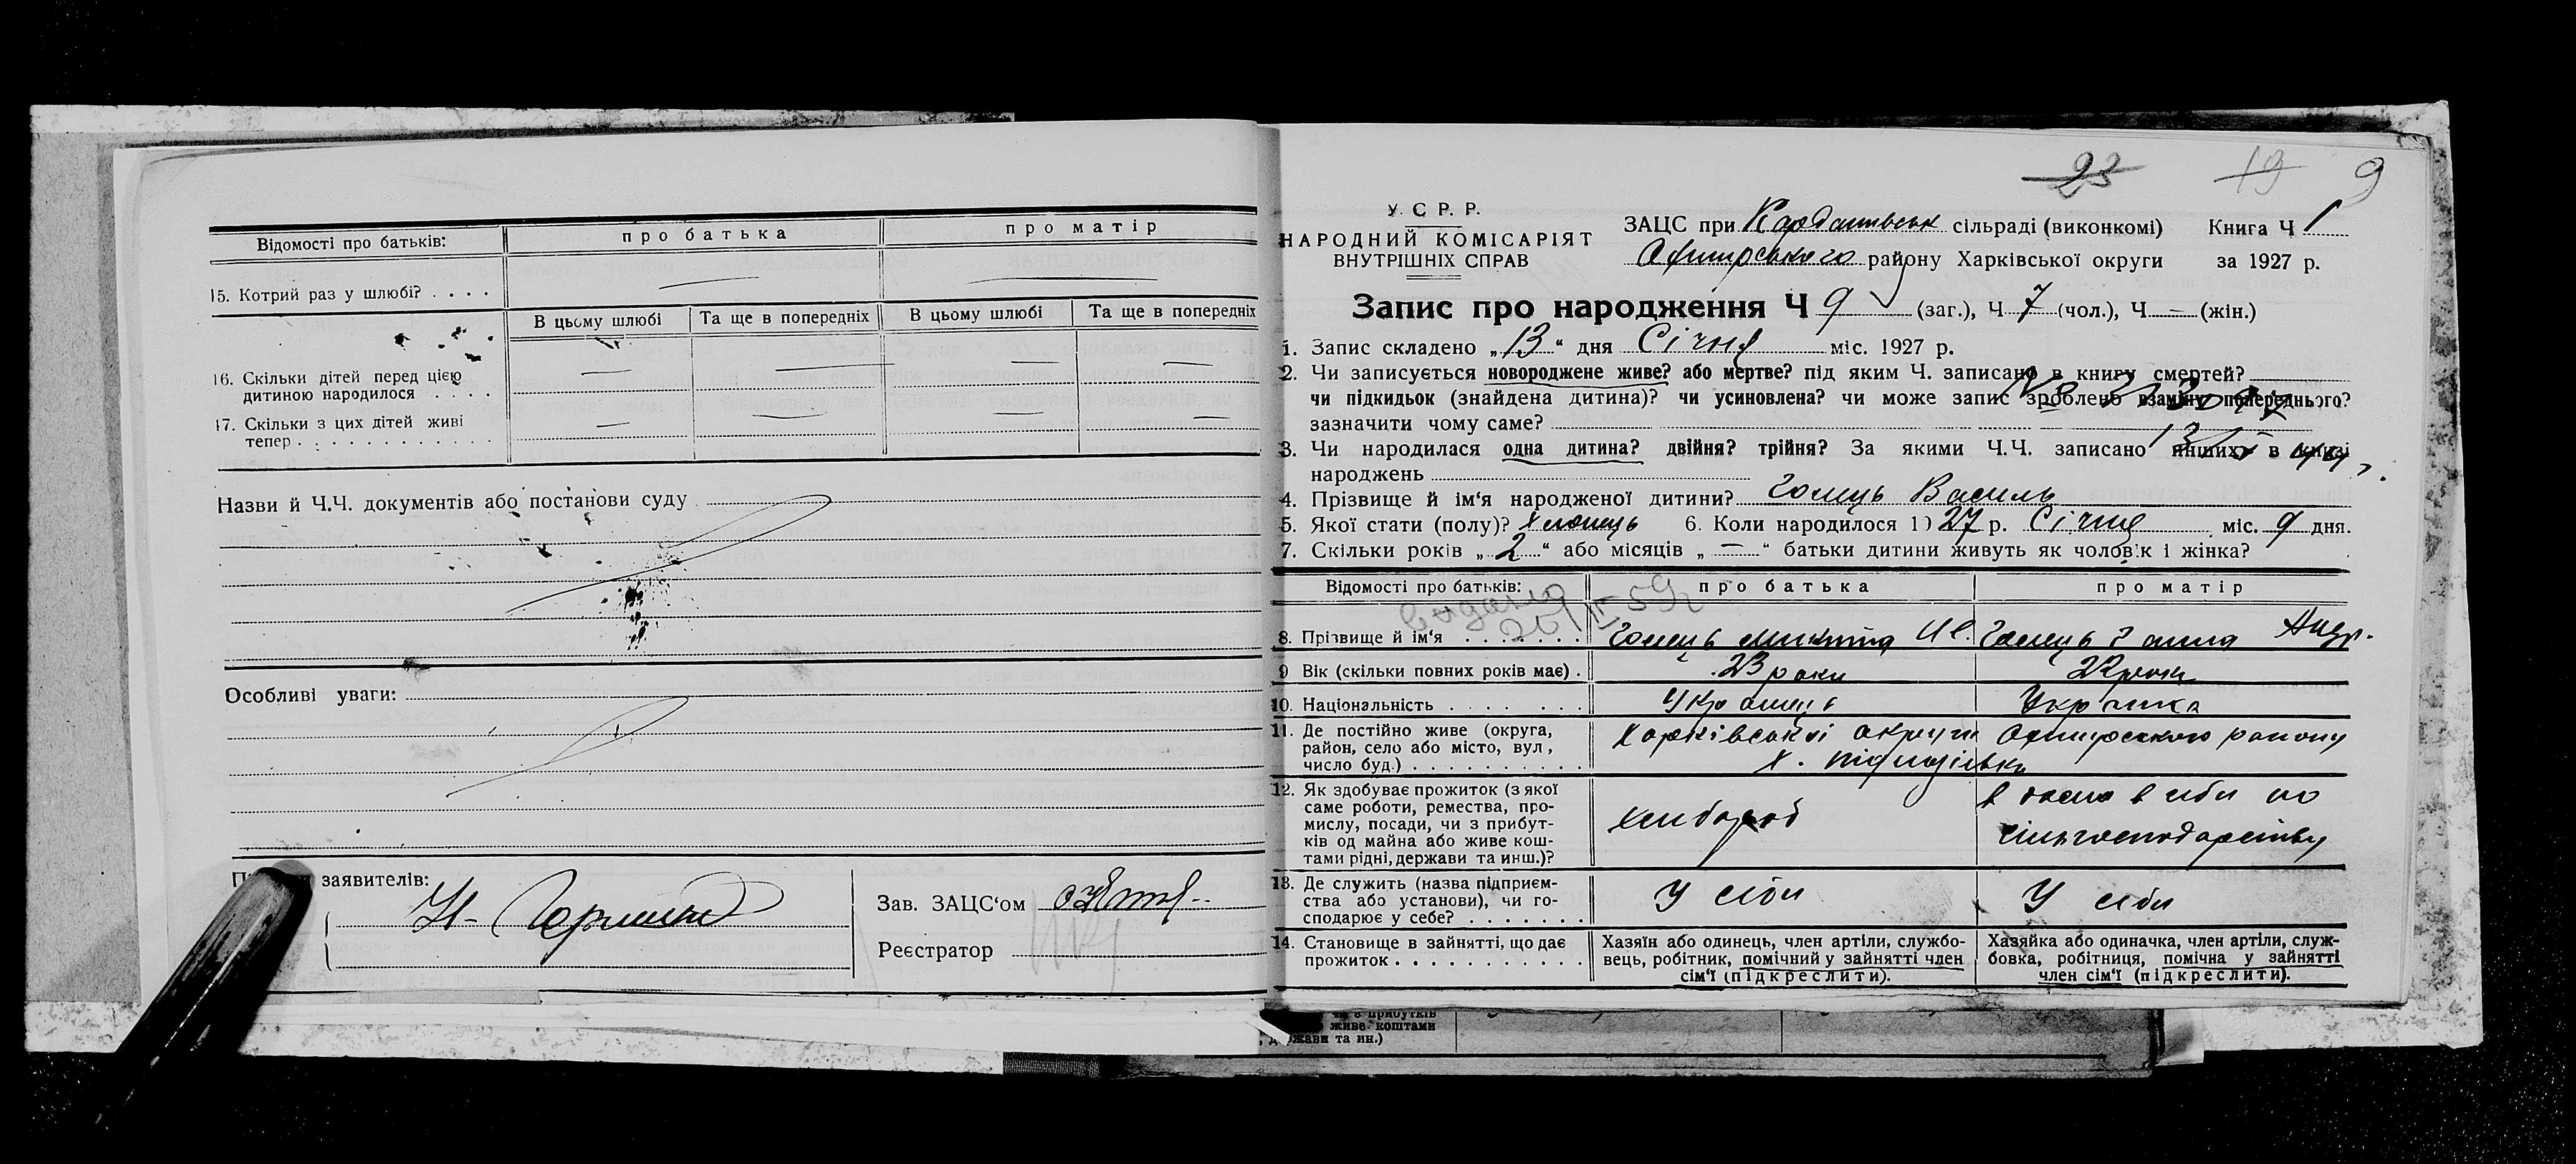 Відомості про батьків: про батька про матір
15. Котрий раз у шлюбі? . . . . — —
В цьому шлюбі Та ще в попередніх В цьому шлюбі Та ще в попередніх
16. Скільки дітей перед цією
дитиною народилося . . . . — — — —
17. Скільки з цих дітей живі
тепер . . . . . . . . . . . . — — — —
Назви й Ч.Ч. документів або постанови суду
Особливі уваги:
заявителів:
Зав. ЗАЦС'ом
Реєстратор
23 19 9
У. С. Р. Р.
НАРОДНИЙ КОМІСАРІЯТ
ВНУТРІШНІХ СПРАВ
ЗАЦС при сільраді (виконкомі) Книга Ч 1
району Харківської округи за 1927 р.
Запис про народження Ч 9 (заг.), Ч 7 (чол.), Ч — (жін.)
1. Запис складено „13" дня Січня міс. 1927 р.
2. Чи записується новороджене живе? або мертве? під яким Ч. записано в книгу смертей?
чи підкидьок (знайдена дитина)? чи усиновлена? чи може запис зроблено взаміну попереднього?
зазначити чому саме?
3. Чи народилася одна дитина? двійня? трійня? За якими Ч.Ч. записано инших в книзі
народжень
4. Прізвище й ім'я народженої дитини? Гомець Василь
5. Якої стати (полу)? хлопець 6. Коли народилося 1927 р. Січня міс. 9 дня.
7. Скільки років „2" або місяців „—" батьки дитини живуть як чоловік і жінка?
Відомості про батьків: про батька про матір
видано
8. Прізвище й ім'я . . . . . . . Гомець Микита Гомець Ганна Андр.
9 Вік (скільки повних років має) . 23 роки
10. Національність . . . . . . . Українець Укр'їнка
11. Де постійно живе (округа,
район, село або місто, вул.,
число буд.) . . . . . . . . . . Харківської округи
х.
12. Як здобуває прожиток (з якої
саме роботи, ремества, про-
мислу, посади, чи з прибут-
ків од майна або живе кош-
тами рідні, держави та инш.)? хлибороб
13. Де служить (назва підприєм-
ства або установи), чи го-
сподарює у себе? . . . . . . . У сіби У сіби
14. Становище в зайнятті, що дає
прожиток . . . . . . . . . . .
Хазяїн або одинець, член артіли, службо-
вець, робітник, помічний у зайнятті член
сім'ї (підкреслити).
Хазяйка або одиначка, член артіли, служ-
бовка, робітниця, помічна у зайнятті
член сім'ї (підкреслити).
живе коштами
та ин.)